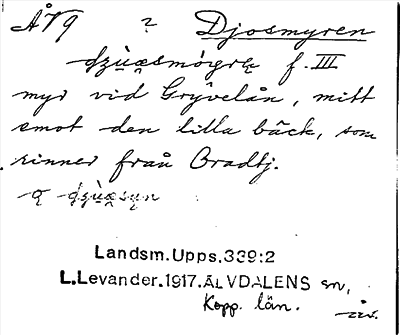 ÅV9 ? Djosmyren
f. III
myr vid Gryvelån, mitt
emot den lilla bäck, som
rinner från Bradtj.
Landsm.Upps.339:2
L.Levander.1917.ÄLVDALENS sn,
Kopp. län.